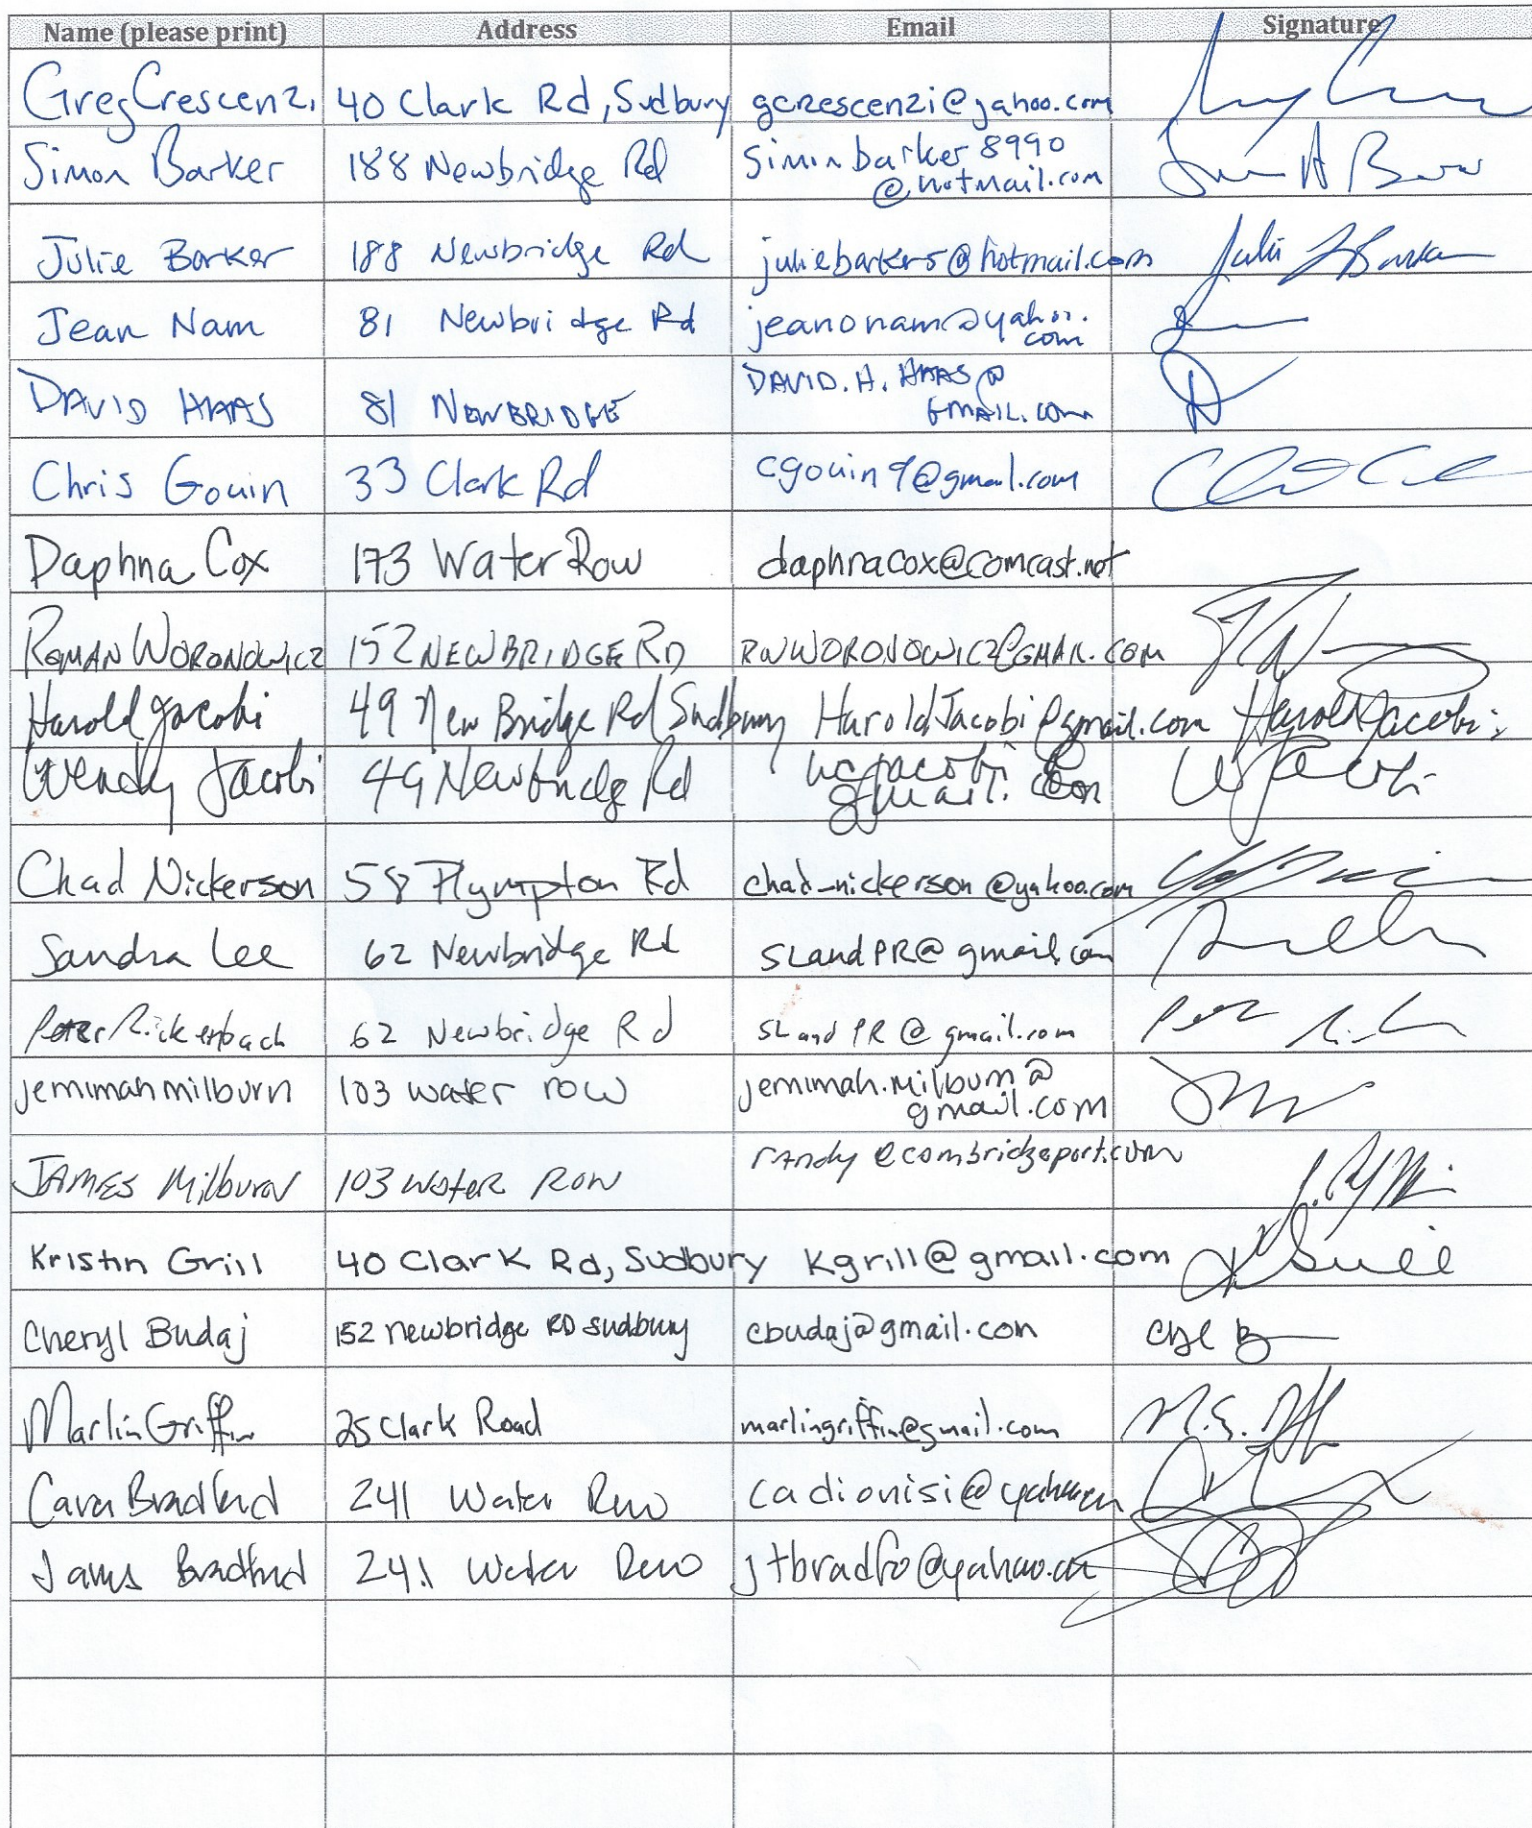 Name (please print) Address Email Signature
Greg Crescenzi 40 Clark Rd, Sudbury gcrescenzi@yahoo.com
Simon Barker 188 Newbridge Rd simonbarker8990
@hotmail.com
Julie Barker 188 Newbridge Rd juliebarker5@hotmail.com
Jean Nam 81 Newbridge Rd jeanonam@yahoo.
com
DAVID HAAS 81 NEWBRIDGE DAVID.H.HAAS@
GMAIL.COM
Chris Gouin 33 Clark Rd cgouin9@gmail.com
Daphna Cox 173 Water Row daphnacox@comcast.net
ROMAN WORONOWICZ 152 NEWBRIDGE RD RWWORONOWICZ@GMAIL.COM
Harold Jacobi 49 New Bridge Rd Sudbury HaroldJacobi@gmail.com Harold Jacobi
Wendy Jacobi 49 Newbridge Rd wcjacobi@
gmail.com W Jacobi
Chad Nickerson 58 Plympton Rd chad_nickerson@yahoo.com
Sandra Lee 62 Newbridge Rd SLandPR@gmail.com
Peter Rickenbach 62 Newbridge Rd SLandPR@gmail.com
jemimah milburn 103 water row jemimah.milburn@
gmail.com
JAMES Milburn 103 Water Row randy@cambridgeport.com
Kristin Grill 40 Clark Rd, Sudbury Kgrill@gmail.com
Cheryl Budaj 152 newbridge RD sudbury cbudaj@gmail.com
Marlin Griffin 25 Clark Road marlingriffin@gmail.com
Cara Bradford 241 Water Row cadionisi@yahoo.com
James Bradford 241 Water Row jtbradfo@yahoo.com